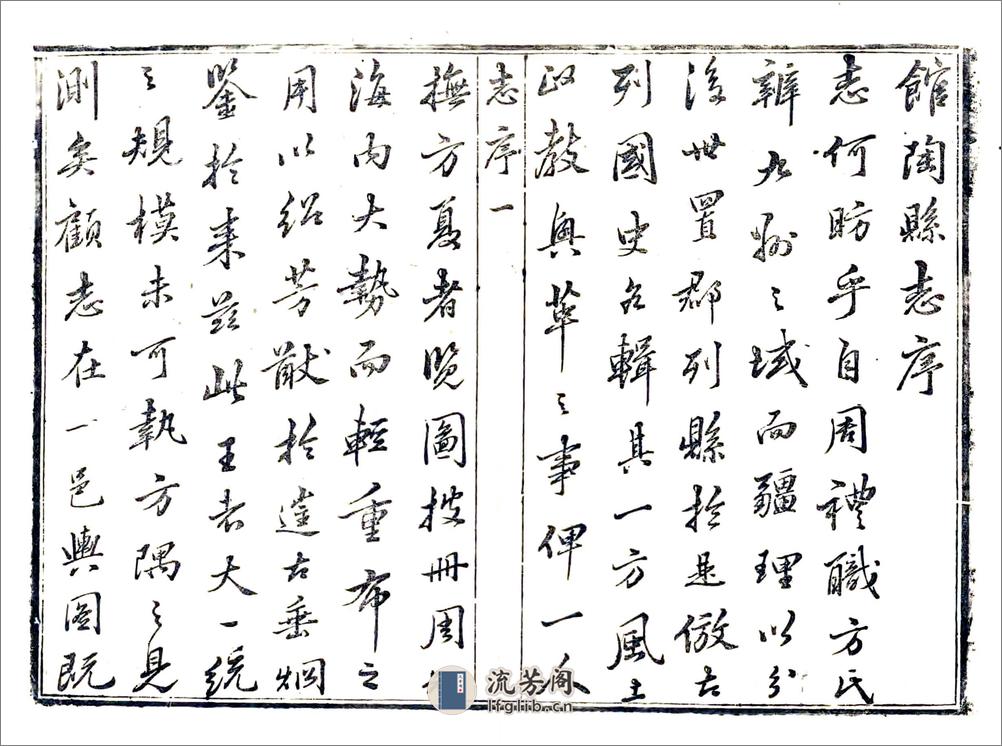 館陶縣志序
志何昉乎自周禮職方氏
辨九州之域而疆理以分
後世置郡列縣於是倣古
列國史各輯其一方風土
政教興革之事俾一人
志序 一
撫方夏者覽圖披冊周
海內大勢而輕重布之
用以紹芳猷於邃古垂烱
鑒於來茲此王者大一統
之規模未可執方隅之見
測矣顧志在一邑輿圖既
流芳阁
lfglib.cn